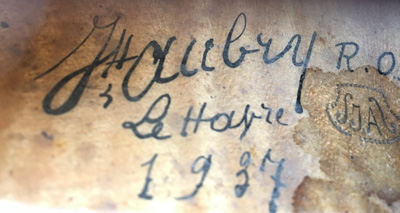 Jh Aubry R.O.
Le Havre
1937